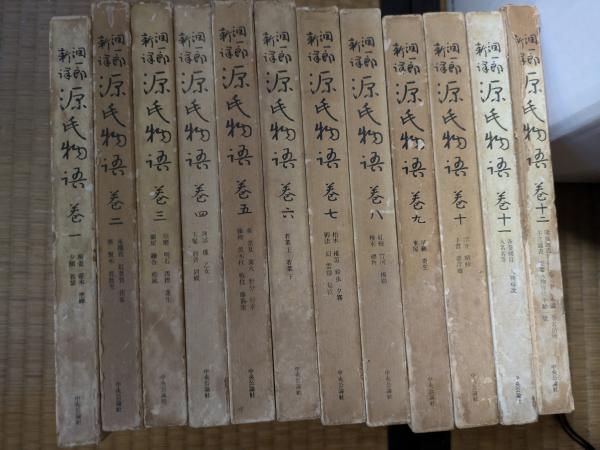 潤一郎
新譯
源氏物語 巻一
桐壺 帚木 空蟬
夕顔 若紫
中央公論社
潤一郎
新譯
源氏物語 巻二
末摘花 紅葉賀 花宴
葵 賢木 花散里
中央公論社
潤一郎
新譯
源氏物語 巻三
須磨 明石 澪標 蓬生
關屋 繪合 松風
中央公論社
潤一郎
新譯
源氏物語 巻四
薄雲 槿 乙女
玉鬘 初音 胡蝶
中央公論社
潤一郎
新譯
源氏物語 巻五
螢 常夏 篝火 野分 行幸
藤袴 眞木柱 梅枝 藤裏葉
中央公論社
潤一郎
新譯
源氏物語 巻六
若菜上 若菜下
中央公論社
潤一郎
新譯
源氏物語 巻七
柏木 横笛 鈴虫 夕霧
御法 幻 雲隠 匂宮
中央公論社
潤一郎
新譯
源氏物語 巻八
紅梅 竹河 橋姫
椎本 總角
中央公論社
潤一郎
新譯
源氏物語 巻九
早蕨 寄生
東屋
中央公論社
潤一郎
新譯
源氏物語 巻十
浮舟 蜻蛉
手習 夢浮橋
中央公論社
潤一郎
新譯
源氏物語 巻十一
中央公論社
潤一郎
新譯
源氏物語 巻十二
中央公論社